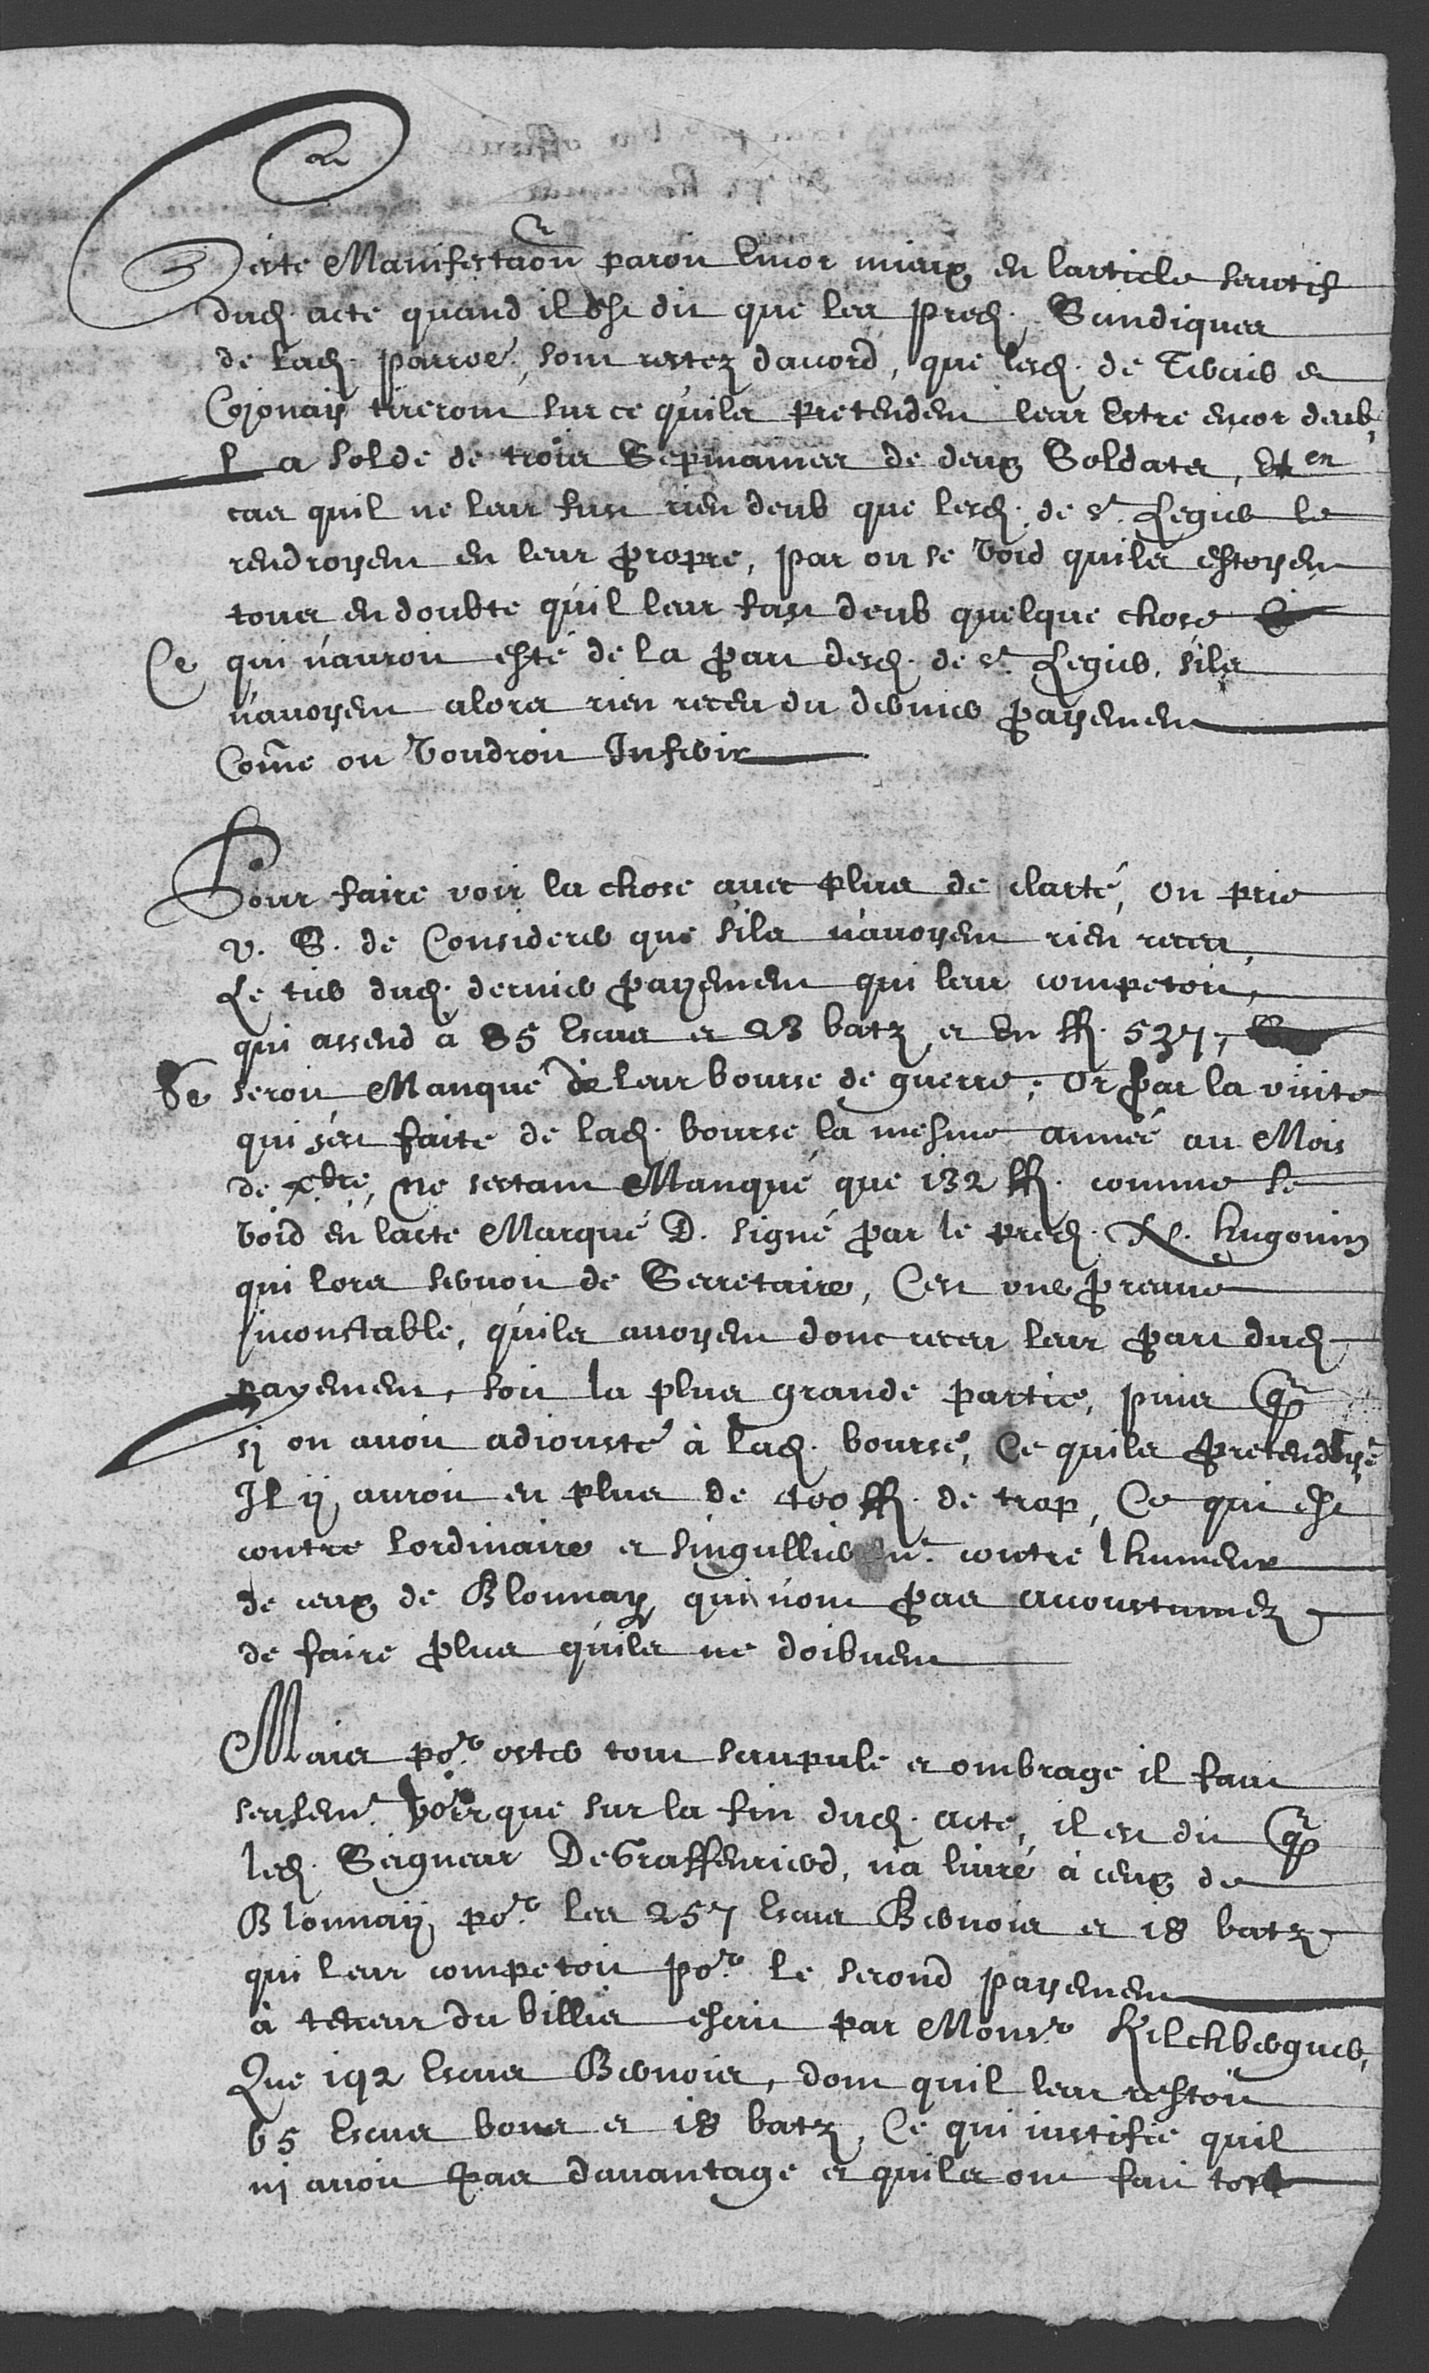 Ceste Manifestaõn paroit Encor mieux en larticle sentif
dud. acte quand il Est dit que les pred. Sindiques
de lad. parroe, sont restez dacord, que lesd. de Tercier et
Cojonay tireront sur ce quils pretendent leur Estre encor deub,
La solde de trois Sepmaines de deux Soldats, Et en
cas quil ne leur fust rien deub que lesd. de St. Legier le
rendroyent en leur propre, par ou se Void quils estoyent
tous en doubte quil leur fust deub quelque chose
Ce qui nauroit esté de la part desd. de St. Legier, sils
navoyent alors rien receu du dernier payement
Come on Voudroit Inferir
Pour faire voir la chose avec plus de clarté, on prie
V. S. de Considerer que sils navoyent rien receu,
Le tier dud. dernier payement qui leur competoit,
qui assend à 85 Escus et 23 batz, et En ff. 537,
Se seroit Manqué de leur bourse de guerre; Or par la visite
qui sest faite de lad. bourse la mesme année au Mois
de xbre, Ne sestant Manqué que 132 ff. comme se
Void en lacte Marqué D. signé par le pred. N. hugonin
qui lors servoit de Secretaire, Cest une preuve
incontable, quils avoyent donc receu leur part dud.
payement, soit la plus grande partie, puis que
si on avoit adiousté à lad. bourse, Ce quils pretendoyẽ
Il ÿ auroit en plus de 400 ff. de trop, Ce qui est
contre lordinaire et singullierent. contre lhumeur
de ceux de Blonnay qui nont pas accoustumez
de faire plus quils ne doibvent
Mais por. oster tout scrupule et ombrage il faut
seulemt. Voir que sur la fin dud. acte, il est dit que
led. Seigneur DeGraffenried, na livré à ceux de
Blonnaÿ por. les 257 Escus Bernois et 18 batz
qui leur competoit por. le second payement
à teneur du billiet escrit par Monsr. Kilchberguer,
Que 192 Escus Bernois, dont quil leur restoit
65 Escus bons et 18 batz, Ce qui iustifie quil
ni avoit pas davantage et quils ont fait tort